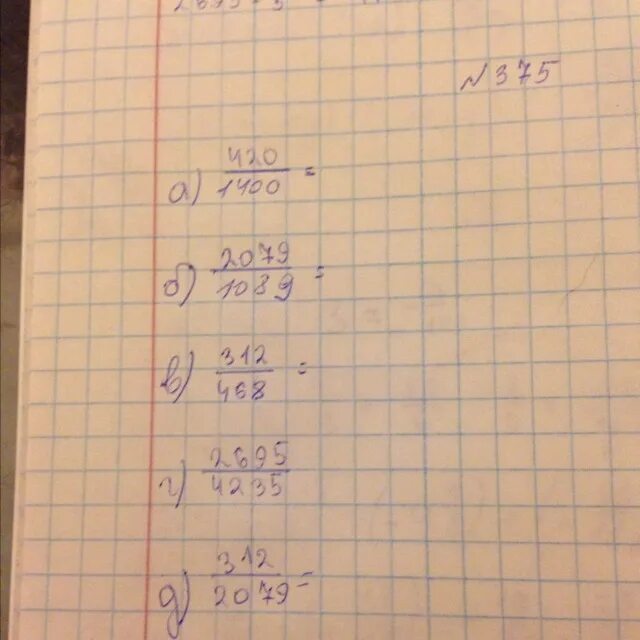 № 375
а) 420/1400 =
б) 2079/1089 =
в) 312/468 =
г) 2695/4235
д) 312/2079 =